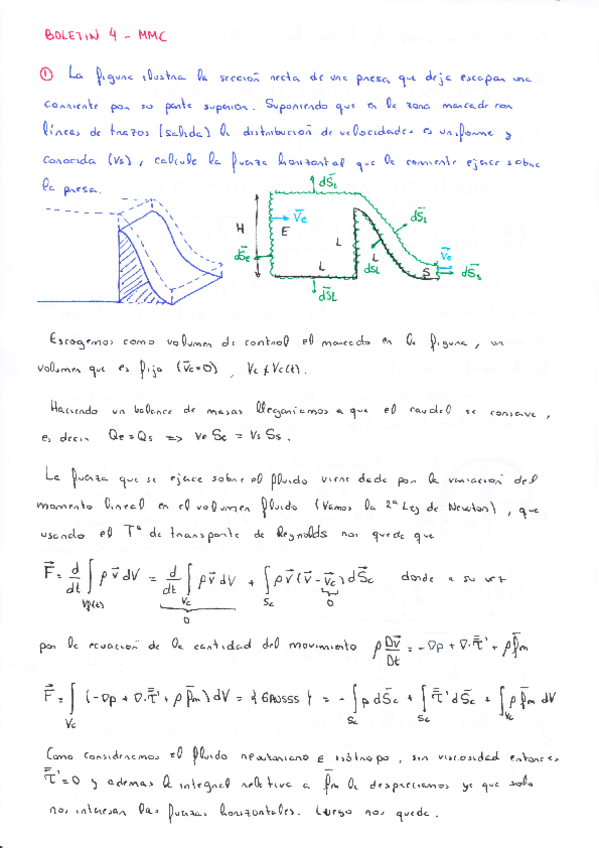 BOLETIN 4 - MMC
① La figura ilustra la sección recta de una presa que deja escapar una
corriente por su parte superior. Suponiendo que en la zona marcada con
líneas de trazos (salida) la distribución de velocidades es uniforme y
conocida (Vs), calcule la fuerza horizontal que la corriente ejerce sobre
la presa.
dS⃗L
H
V⃗e
E
dS⃗e
L
L
L
dSL
dS⃗L
dS⃗L
V⃗e
S
dS⃗s
Escogemos como volumen de control el marcado en la figura, un
volumen que es fijo (v⃗c=0), Vc ≠ Vc(t).
Haciendo un balance de masas llegaríamos a que el caudal se conserva,
es decir Qe = Qs => Ve Se = Vs Ss.
La fuerza que se ejerce sobre el fluido viene dada por la variación del
momento lineal en el volumen fluido (Vamos la 2ª Ley de Newton), que
usando el Tª de transporte de Reynolds nos queda que
F⃗ = d/dt ∫ ρ v⃗ dV = d/dt ∫Vc ρ v⃗ dV + ∫Sc ρ v⃗ (v⃗ - v⃗c) dS⃗c donde a su vez
Vf(t) 0 0
por la ecuación de la cantidad del movimiento ρ Dv⃗/Dt = -∇p + ∇·τ̿' + ρ f⃗m
F⃗ = ∫Vc (-∇p + ∇·τ̿' + ρ f⃗m) dV = { GAUSSS } = - ∫Sc p dS⃗c + ∫Sc τ̿' dS⃗c + ∫Vc ρ f⃗m dV
Como consideramos el fluido newtoniano e isótropo, sin viscosidad entonces
τ̿'=0 y ademas la integral relativa a f⃗m la despreciamos ya que solo
nos interesan las fuerzas horizontales. Luego nos queda.